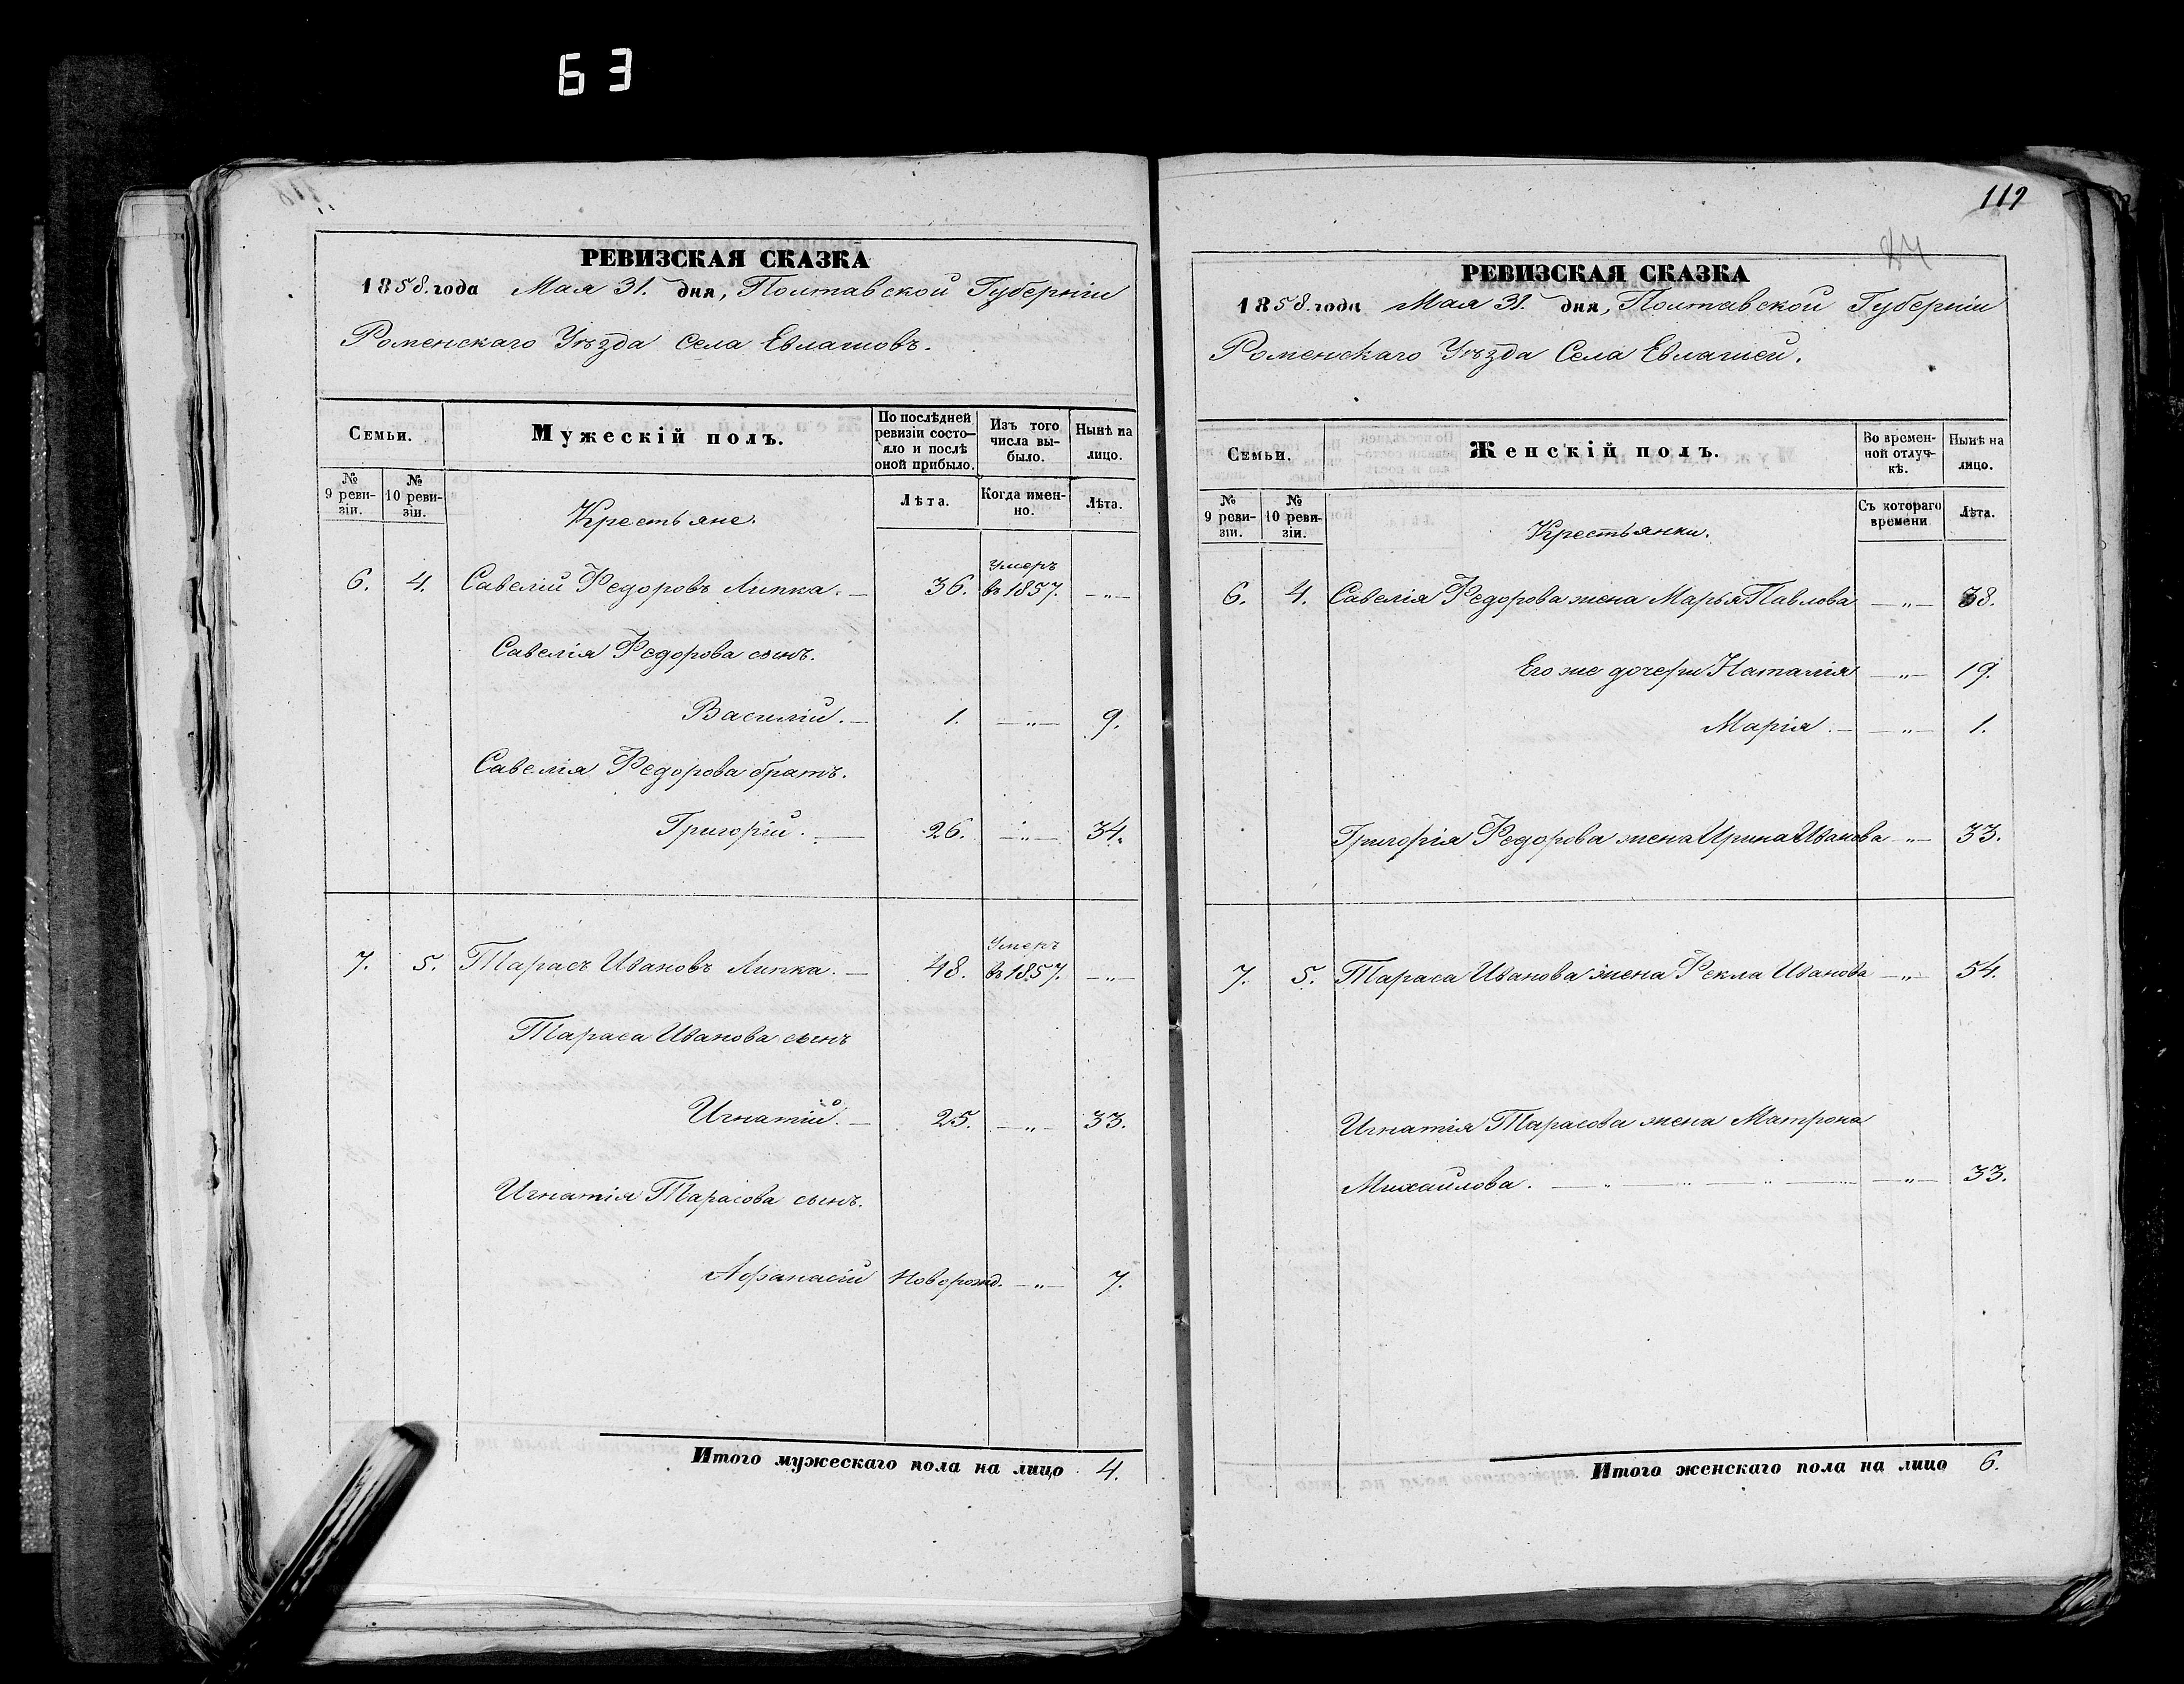 63
РЕВИЗСКАЯ СКАЗКА
1858. года Мая 31. дня, Полтавской Губерніи
Роменскаго Уѣзда Села Евлашовъ.
Семьи.
Мужескій полъ.
По послѣдней ревизіи состояло и послѣ оной прибыло.
Изъ того числа выбыло.
Нынѣ на лицо.
№ 9 ревизіи.
№ 10 ревизіи.
Крестьяне.
Лѣта.
Когда именно.
Лѣта.
6. 4. Савелій Федоровъ Липка. — 36. Умеръ въ 1857. —"—
Савелія Федорова сынъ.
Василій. — 1. —"— 9.
Савелія Федорова братъ.
Григорій. — 26. —"— 34.
7. 5. Тарасъ Ивановъ Липка. — 48. Умеръ въ 1857. —"—
Тараса Иванова сынъ
Игнатій. — 25. —"— 33.
Игнатія Тарасова сынъ.
Афанасій Новорожд. —"— 7.
Итого мужескаго пола на лицо 4.
119
РЕВИЗСКАЯ СКАЗКА
1858. года Мая 31. дня, Полтавской Губерніи
Роменскаго Уѣзда Села Евлашей.
Семьи.
Женскій полъ.
Во временной отлучкѣ.
Нынѣ на лицо.
№ 9 ревизіи.
№ 10 ревизіи.
Крестьянки.
Съ котораго времени
Лѣта.
6. 4. Савелія Федорова жена Марья Павлова —"— 38.
Его же дочери Наталія —"— 19.
Марія. — —"— 1.
Григорія Федорова жена Ирина Иванова —"— 33.
7. 5. Тараса Иванова жена Фекла Иванова —"— 54.
Игнатія Тарасова жена Матрона
Михайлова. —"— 33.
Итого женскаго пола на лицо 6.